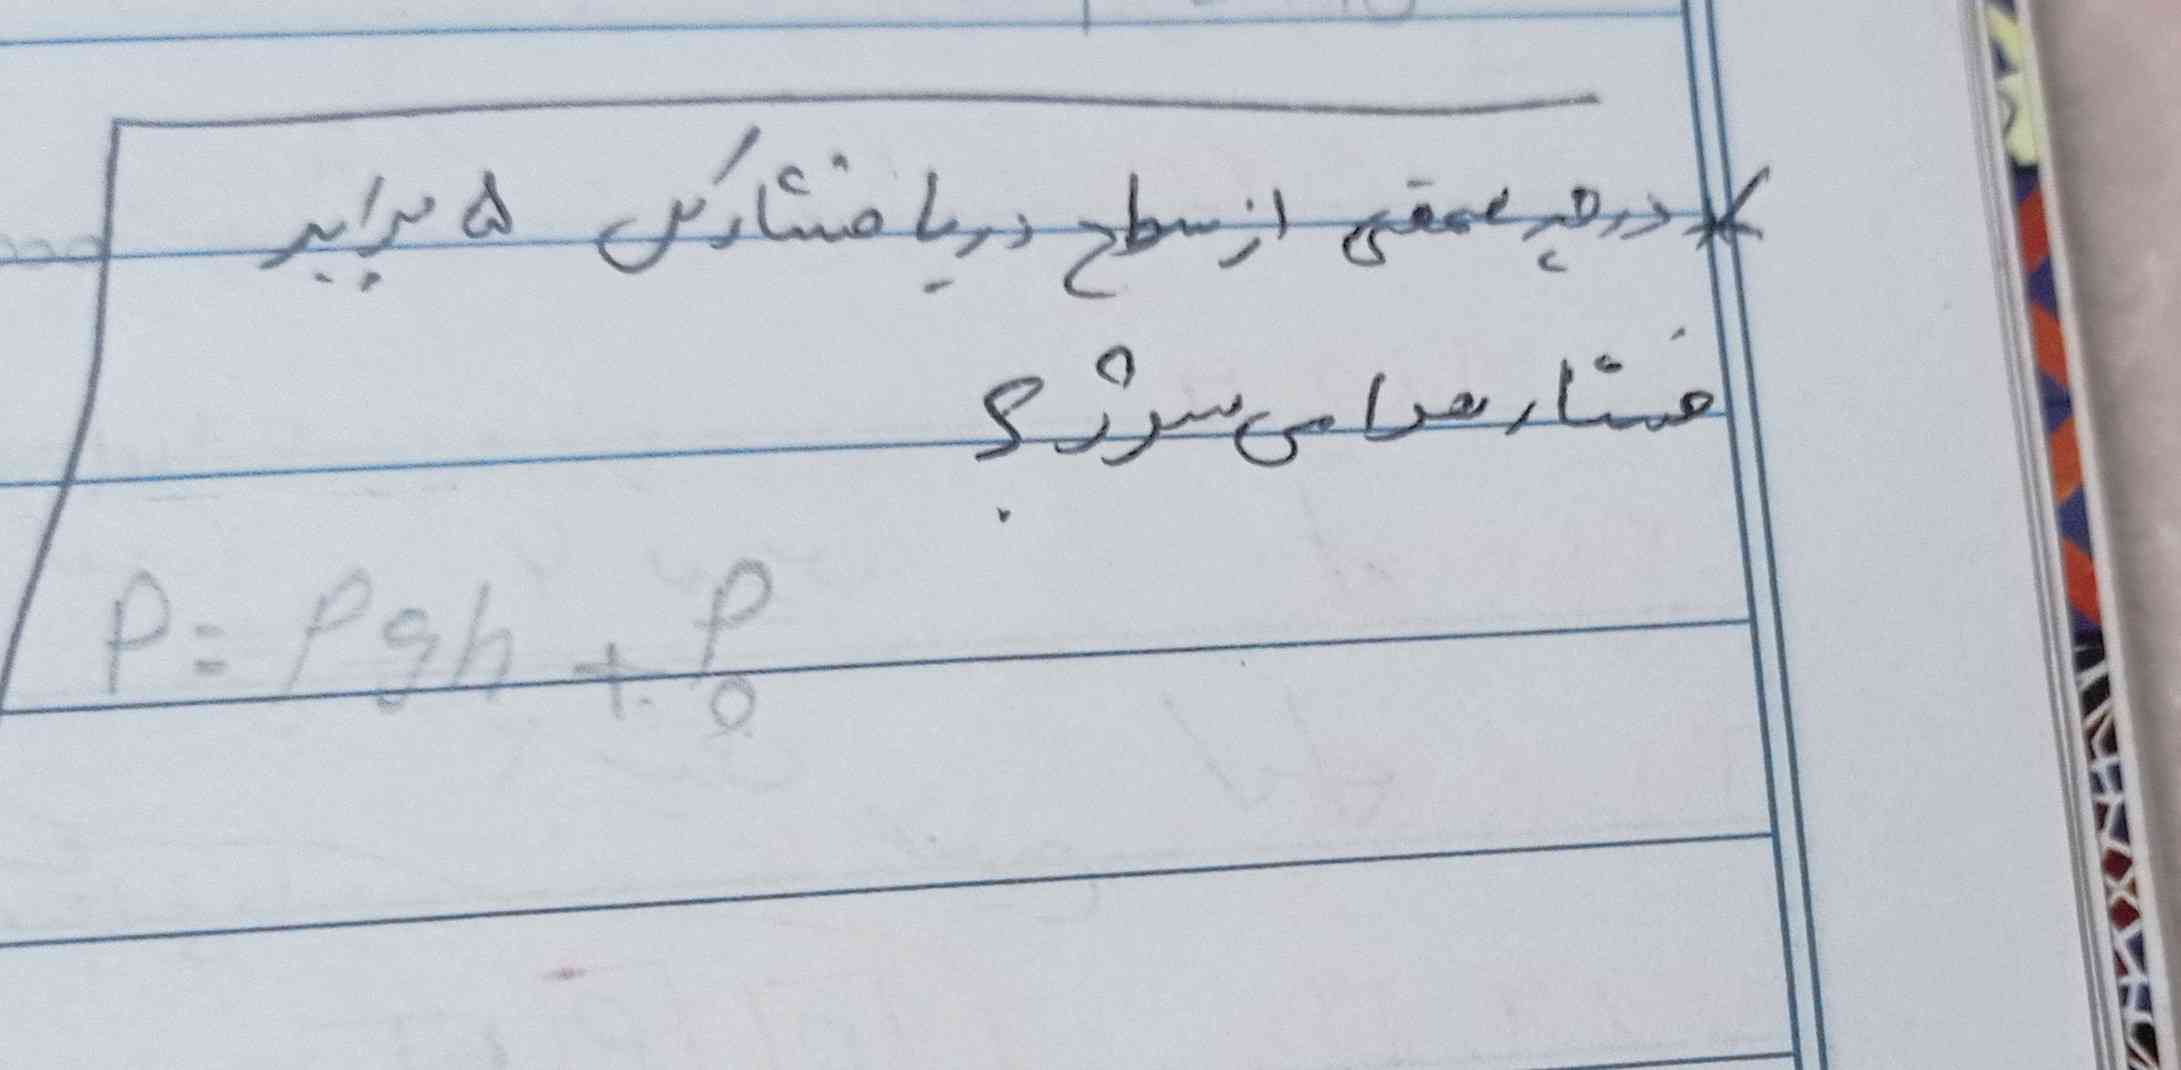 در چه عمقی از سطح دریا فشار کل ۵ برابر
فشار هوا می‌شود؟
P = ρgh + P₀